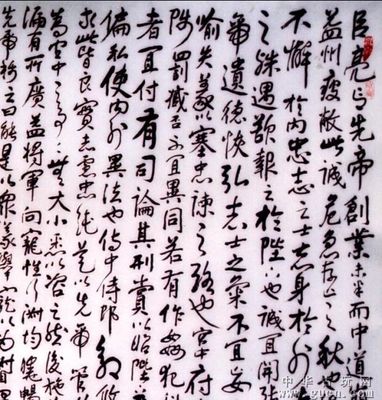 臣亮言先帝創業未半而中道
益州疲敝此誠危急存亡之秋也
不懈於內忠志之士忘身於外
之殊遇欲報之於陛下也誠宜開張
帝遺德恢弘志士之氣不宜妄
喻失義以塞忠諫之路也宮中府
陟罰臧否不宜異同若有作姦犯科
者宜付有司論其刑賞以昭陛下
偏私使內外異法也侍中侍郎郭攸
此皆良實志慮忠純是以先帝簡
為宮中之事事無大小悉以咨之然後施
漏有所廣益將軍向寵性行淑均曉暢
先帝稱之曰能是以眾議舉寵以為督愚
中华古玩网
www.gucn.com